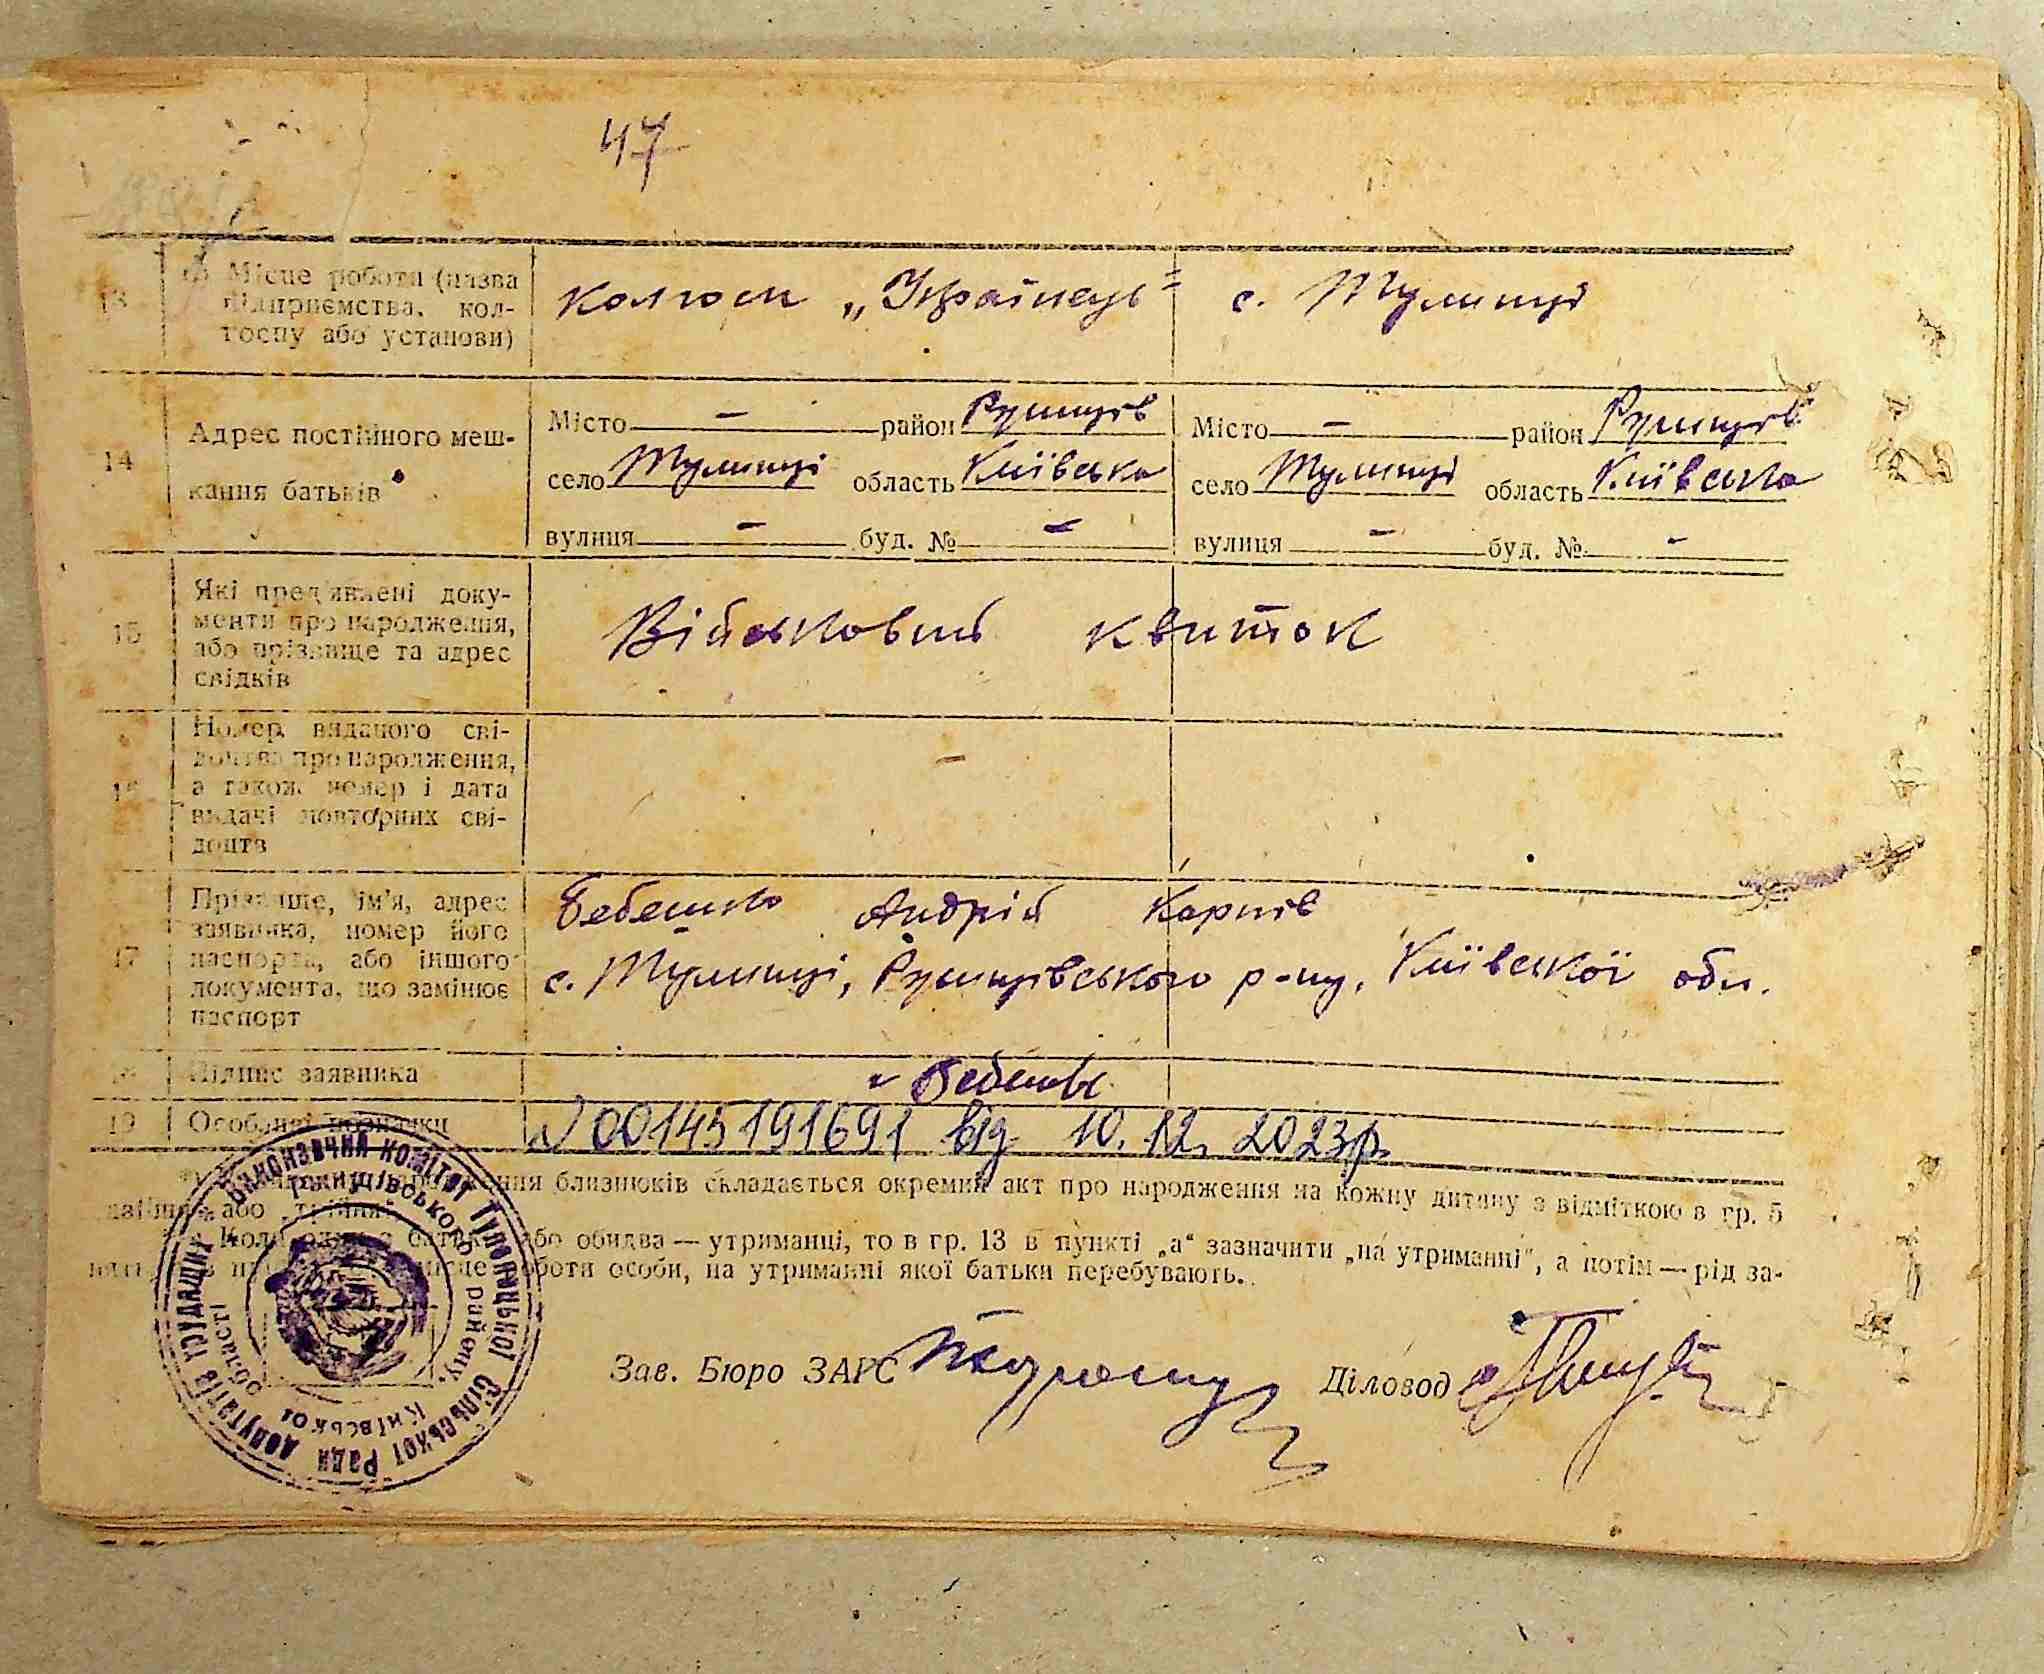 47
13 б) Місце роботи (назва
підприємства, кол-
госпу або установи)
Колгосп „Українець" с. Тулинці
14 Адрес постійного меш-
кання батьків
Місто — район Ржищів Місто — район Ржищів
село Тулинці область Київська село Тулинці область Київська
вулиця — буд. № — вулиця — буд. № —
15 Які пред'явлені доку-
менти про народження,
або прізвище та адрес
свідків
Військовий квиток
16 Номер виданого сві-
доцтва про народження,
а також номер і дата
видачі повторних сві-
доцтв
—
17 Прізвище, ім'я, адрес
заявника, номер його
паспорта, або іншого
документа, що замінює
паспорт
Бебешко Андрій Карпів
с. Тулинці, Ржищівського р-ну, Київської обл.
18 Підпис заявника
Бебешко
19 Особливі позначки
№ 00145191691 від 10.12.2023р.
народження близнюків складається окремий акт про народження на кожну дитину з відміткою в гр. 5
або „трійня"
Коли один з батьків або обидва — утриманці, то в гр. 13 в пункті „а" зазначити „на утриманні", а потім — рід за-
місце роботи особи, на утриманні якої батьки перебувають.
Зав. Бюро ЗАРС Діловод
Виконавчий комітет Тулинської Сільської Ради депутатів трудящих
Ржищівського району, Київської області